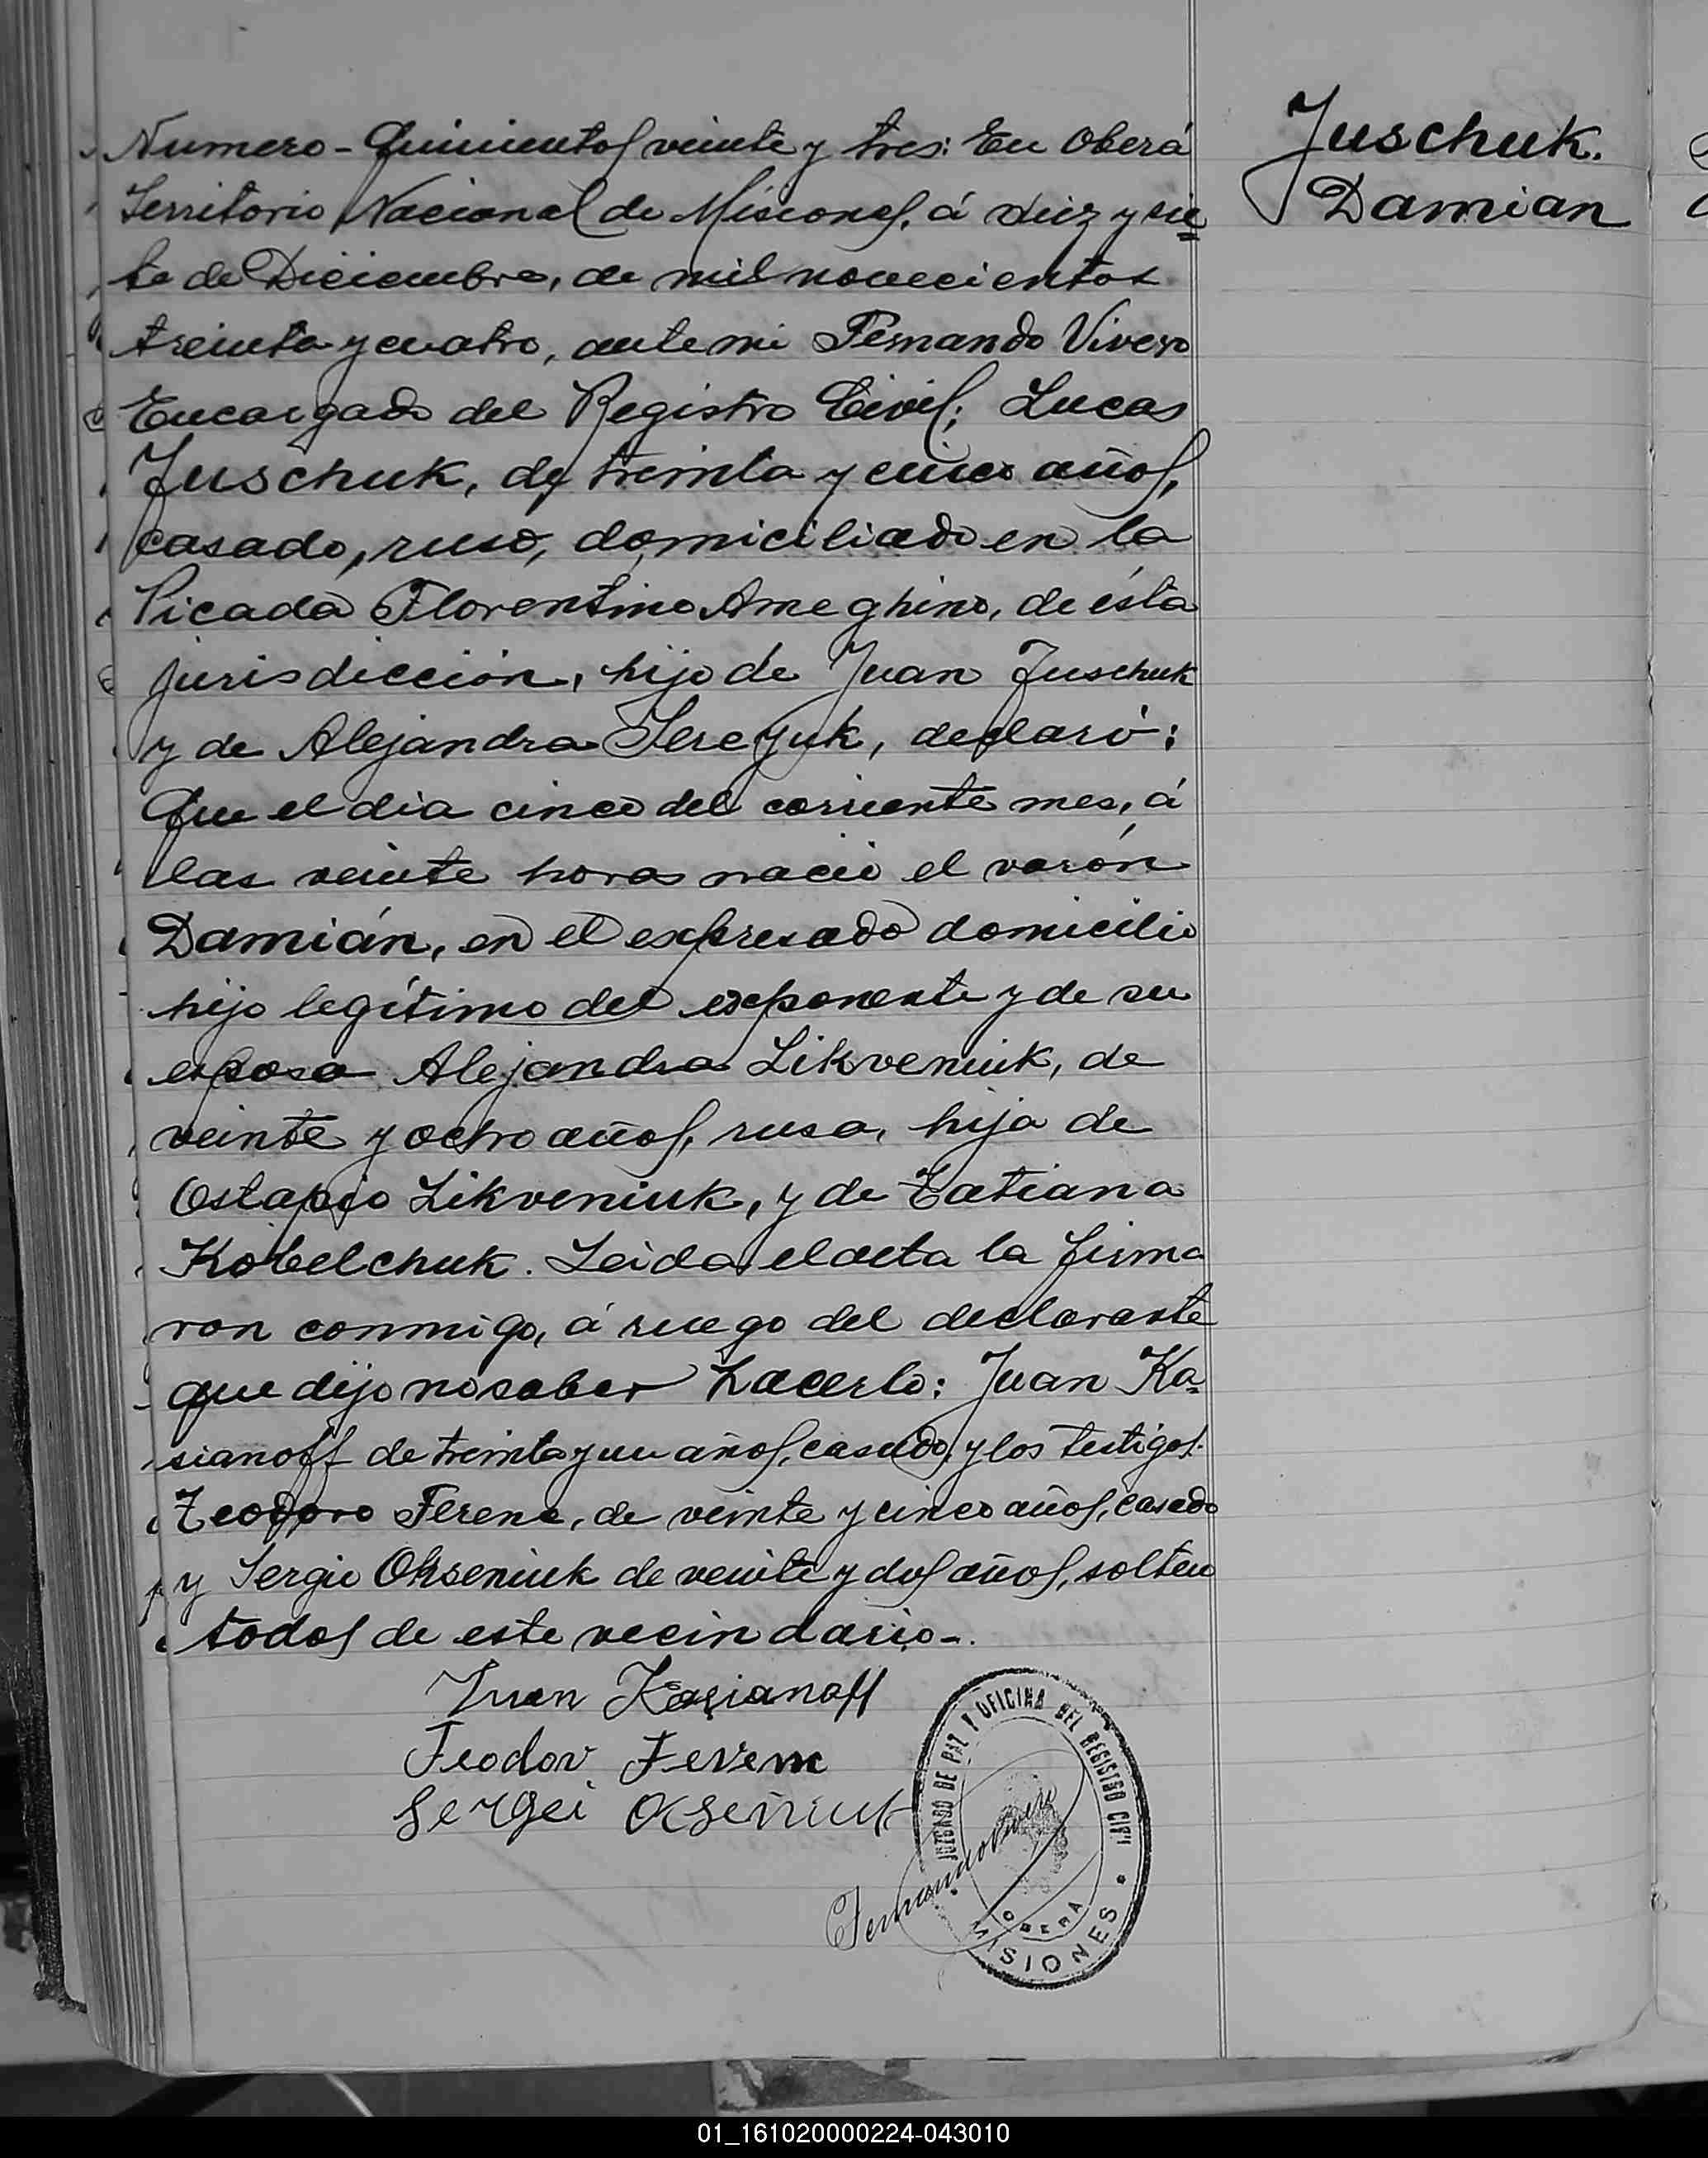 Numero - Quinientos veinte y tres: En Oberá
Territorio Nacional de Misiones, á diez y sie
te de Diciembre, de mil novecientos
treinta y cuatro, ante mi Fernando Vivero
Encargado del Registro Civil; Lucas
Juschuk, de treinta y cinco años,
casado, ruso, domiciliado en la
Picada Florentino Ameghino, de ésta
jurisdicción, hijo de Juan Juschuk
y de Alejandra declaró:
Que el dia cinco del corriente mes, á
las veinte horas nació el varón
Damián, en el expresado domicilio
hijo legítimo del exponente y de su
esposa Alejandra Likveniuk, de
veinte y ocho años, rusa, hija de
Ostapio Likveniuk, y de Tatiana
Kobelchuk. Leida el acta la firma
ron conmigo, á ruego del declarante
que dijo no saber hacerlo: Juan Ka-
sianoff de treinta y un años, casado, y los testigos
Teodoro Ferene, de veinte y cinco años, casado
y Sergio Okseniuk de veinte y dos años, soltero
todos de este vecindario-.
Juan Kasianoff
Feodor
Sergei Okseniuk
Fernando Vivero
JUZGADO DE PAZ Y OFICINA DEL REGISTRO CIVIL
OBERA
MISIONES
Juschuk.
Damian
01_161020000224-043010